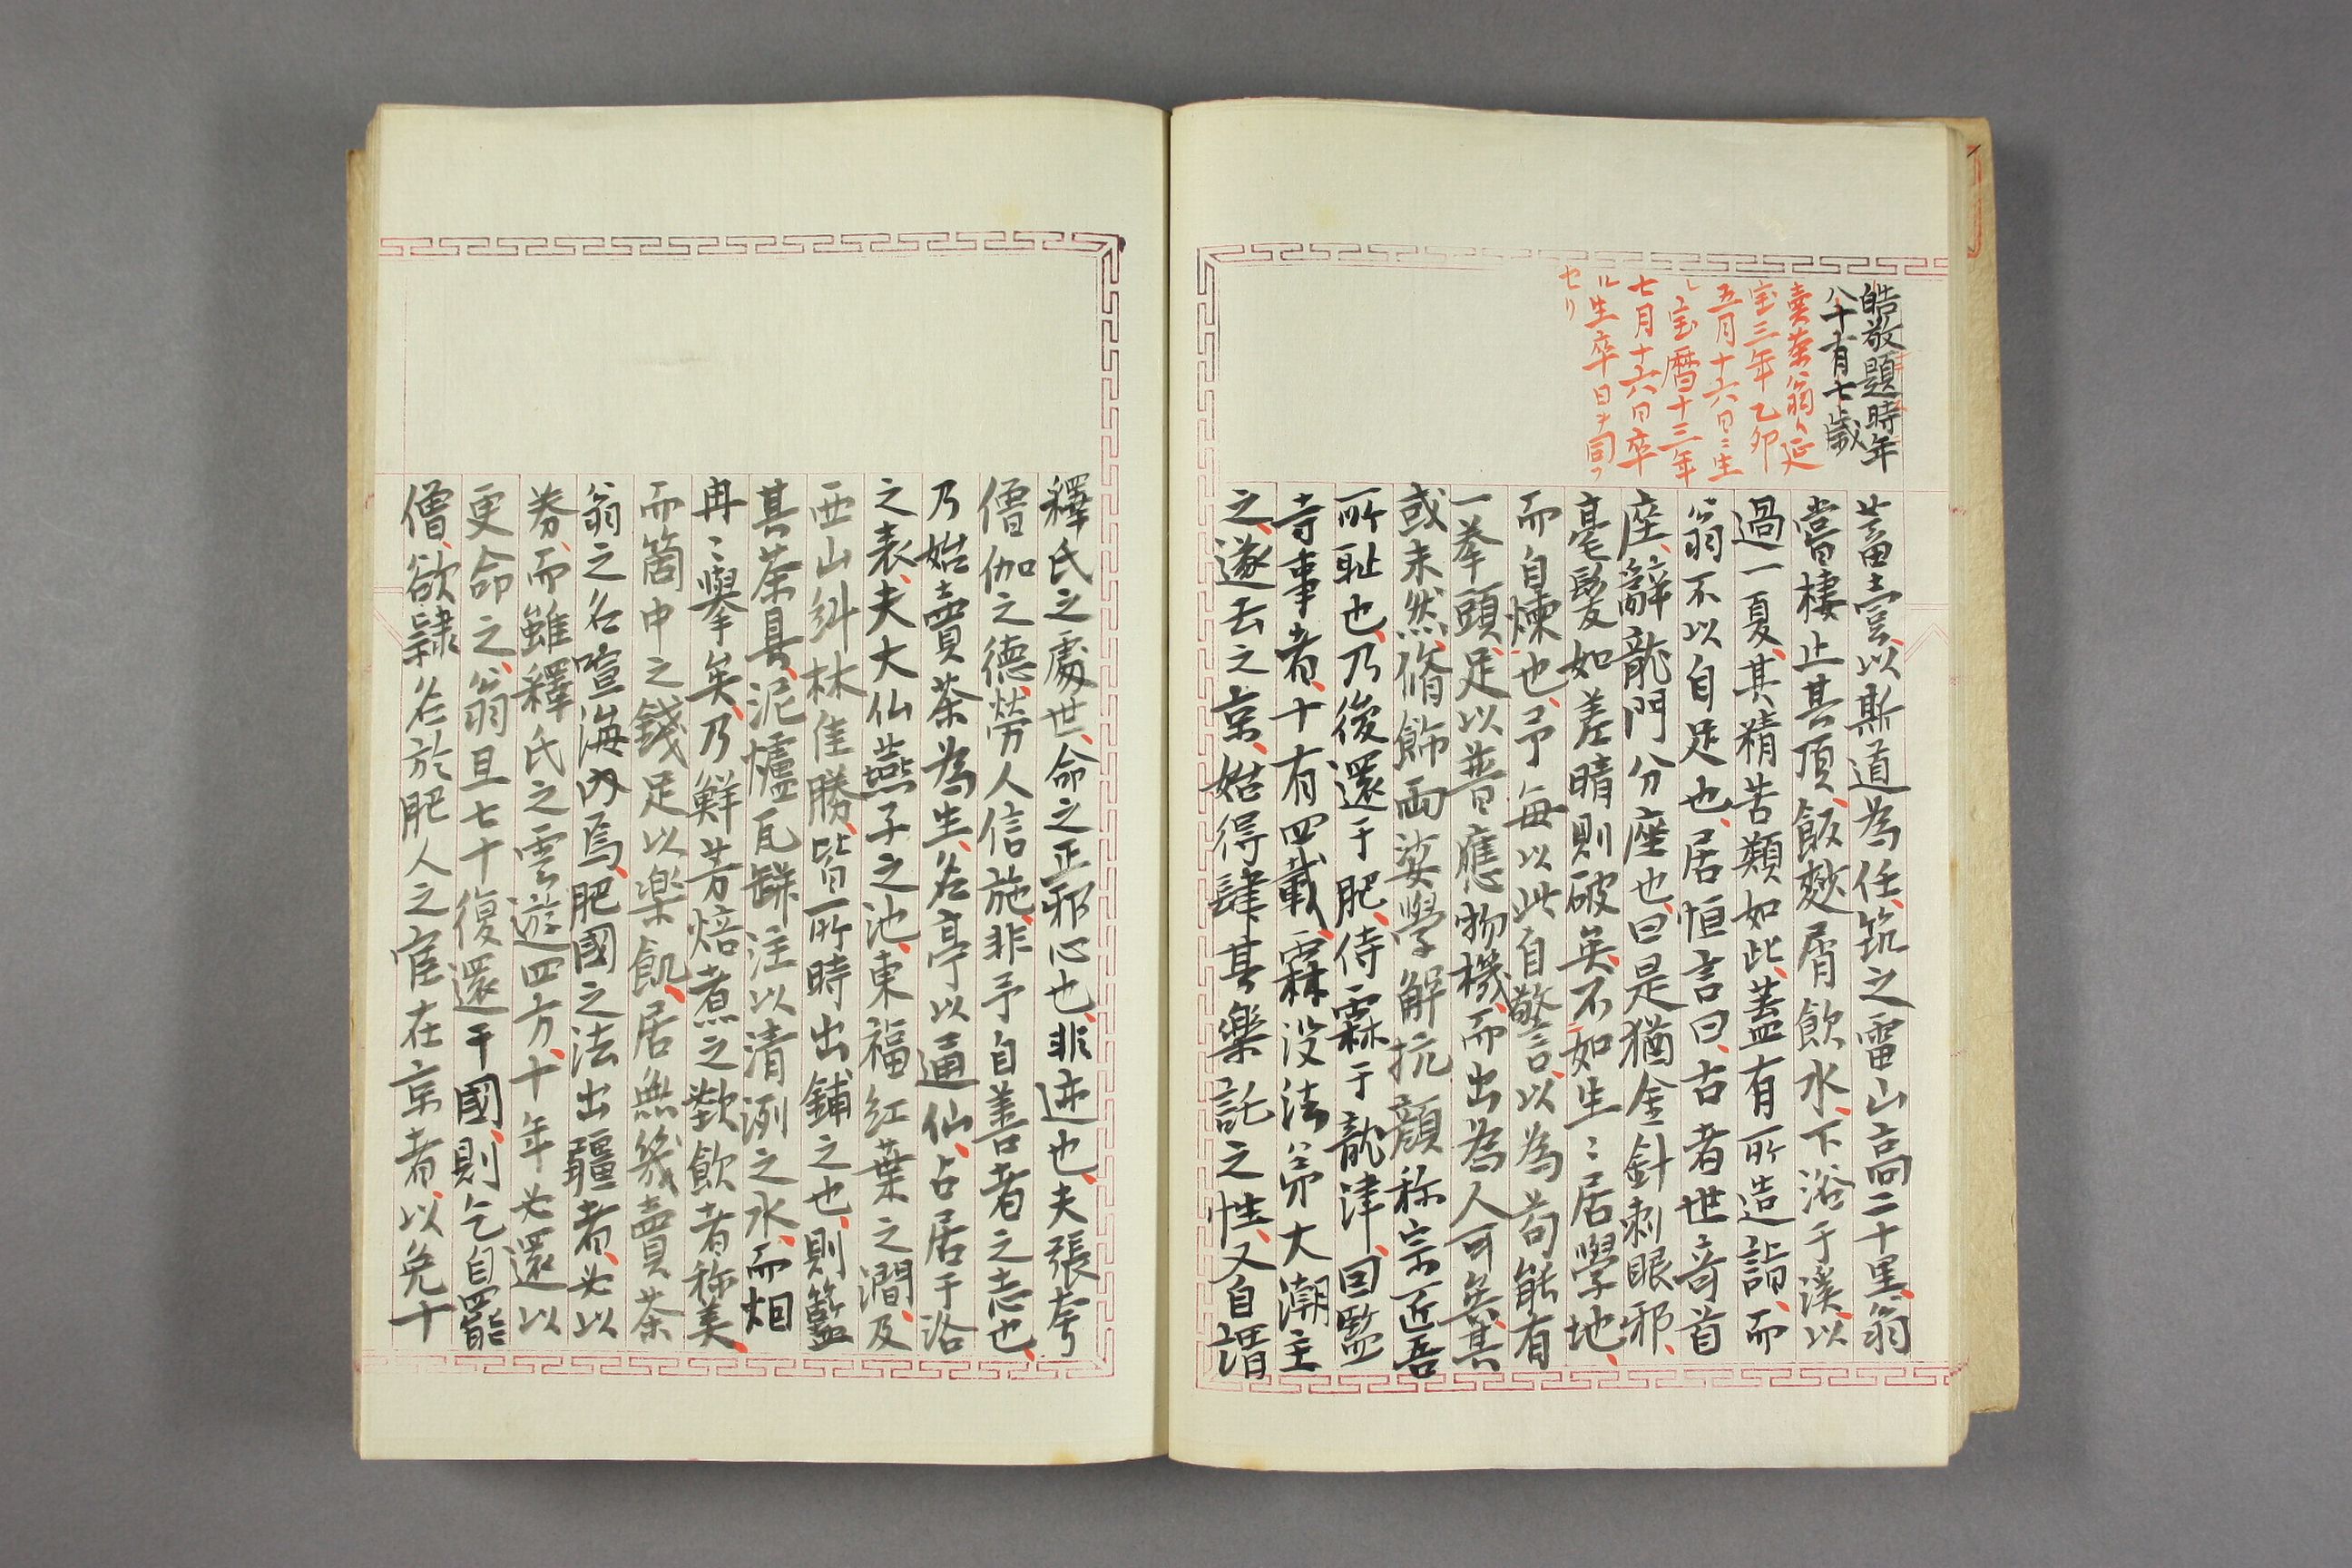 皓敬題時年
八十有七歳
賣茶翁ハ延
宝三年乙卯
五月十六日ニ生
レ宝暦十三年
七月十六日卒
ル生卒日ヲ同フ
セリ
蓄壹以斯道為任、筑之雷山高二十里、翁
嘗棲止其頂、飯麨屑飲水、下浴于溪、以
過一夏、其精苦類如此、蓋有所造詣、而
翁不以自足也、居恒言曰、古者世奇首
座、辭龍門分座也、曰是猶金針刺眼邪、
毫髮如差晴則破矣、不如生〻居學地、
而自煉也、予每以此自警言、以為苟能有
一拳頭、足以普應物機、而出為人可矣、其
或未然、脩飾両娑學解抗顏称宗匠吾
所耻也、乃後還于肥、侍霖于龍津、囙監
寺事者、十有四載、霖没法弟大潮主
之、遂去之京、始得肆其樂託之性、又自謂
釋氏之處世、命之正邪心也、非迹也、夫張夸
僧伽之德、勞人信施、非予自善者之志也、
乃始賣茶為生、名亭以通仙、占居于洛
之表、夫大仏燕子之池、東福紅葉之澗、及
西山糾林佳勝、皆所時出鋪之也、則籃
其茶具、泥爐瓦罅注以清洌之水、而烟
冉〻擧矣、乃鮮芳焙煮之歠飲者称美、
而箇中之錢足以樂飢、居無幾賣茶
翁之名喧海内焉、肥國之法出疆者、必以
券、而雖釋氏之雲遊四方、十年必還以
更命之、翁且七十復還于國、則乞自罷
僧、欲隷名於肥人之宦在京者、以免十